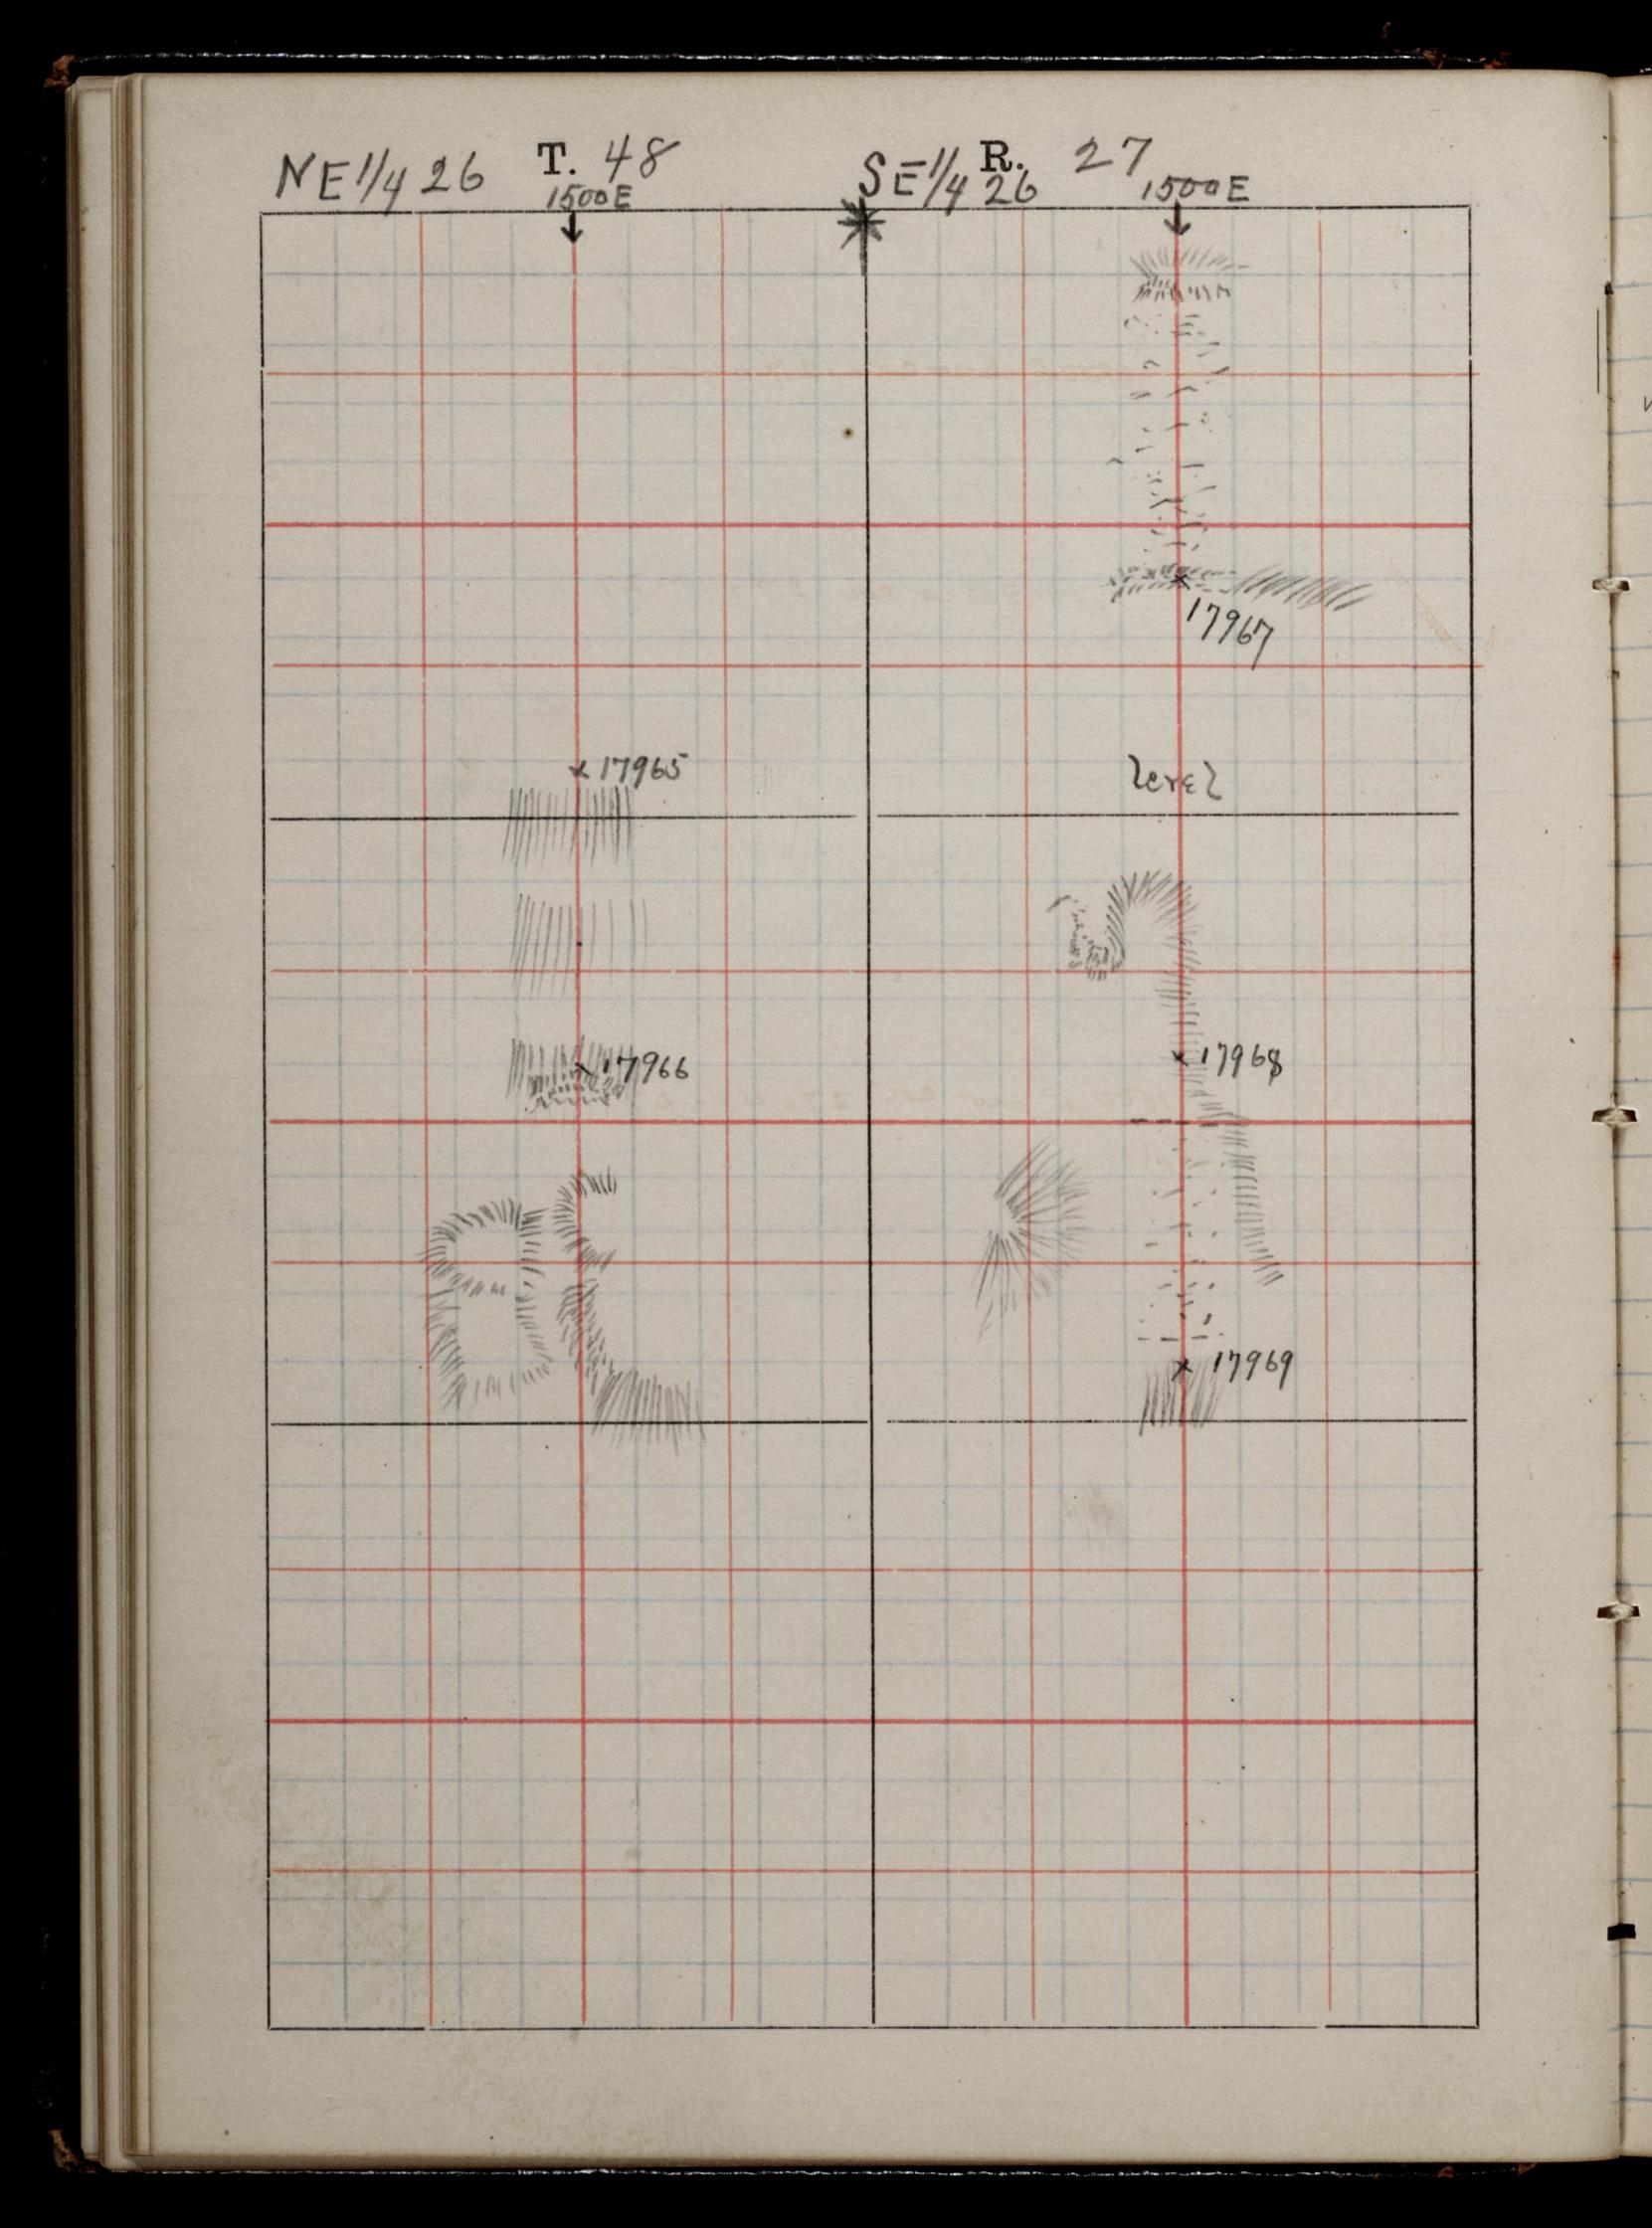 NE 1/4 26 T. 48 SE 1/4 26 R. 27
1500E 1500E
17967
17965
level
17966
17968
17969